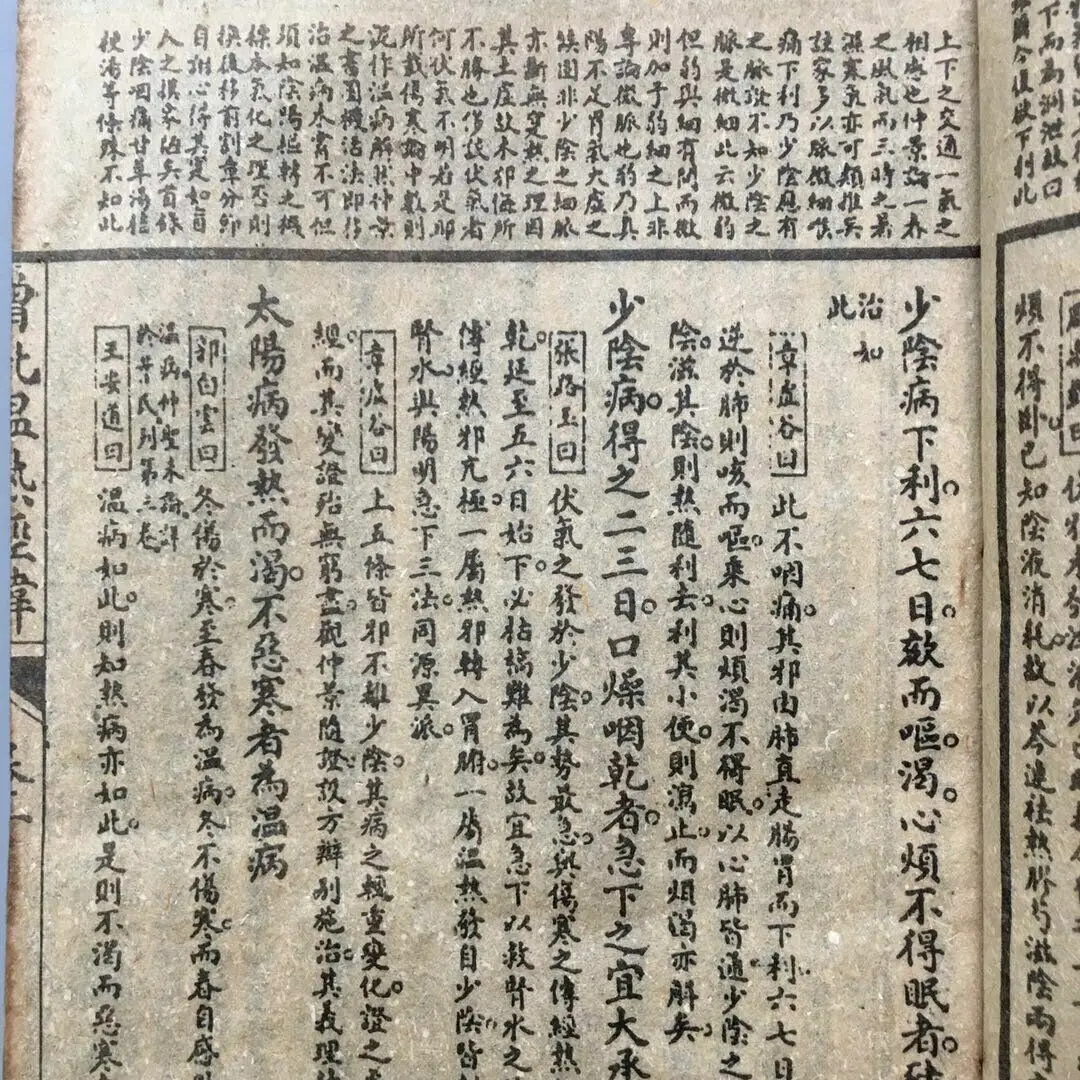 上下之交通一氣之
相感也仲景論一春
之風氣而三時之暑
濕寒氣亦可類推矣
註家多以脈微細喉
痛下利乃少陰應有
之脈證不知少陰之
脈是微細此云微弱
但弱與細有間而微
則加于弱細之上非
專論微脈也弱乃真
陽不足胃氣大虛之
非少陰之細脈
亦斷無變熱之理因
其土虛故木邪侮所
不勝也
何伏氣不明若是耶
所載傷寒論中數則
泥作溫病解然仲景
之書圓機活法即移
治溫病本書不可但
須知陰陽樞轉之機
標本氣化之理否則
換後移前割章分節
自謝心得其實如盲
入之摸象
少陰咽痛甘草湯
梗湯等條殊不知此
少陰病下利六七日欬而嘔渴心煩不得眠者
治如
此
章虛谷曰 此不咽痛其邪由肺直走腸胃而下利六七日
逆於肺則咳而嘔乘心則煩渴不得眠以心肺皆通少陰之
陰滋其陰則熱隨利去利其小便則瀉止而煩渴亦解矣
少陰病得之二三日口燥咽乾者急下之宜大承
張路玉曰 伏氣之發於少陰其勢最急與傷寒之傳經熱
乾延至五六日始下必枯槁難為矣故宜急下以救腎水之
傳經熱邪亢極一屬熱邪轉入胃腑一屬溫熱發自少陰皆
腎水與陽明急下三法同源異派
章虛谷曰 上五條皆邪不離少陰其病之輕重變化證之
經而其變證殆無窮盡觀仲景隨證設方辨别施治其義理
太陽病發熱而渴不惡寒者為溫病
郭白雲曰 冬傷於寒至春發為溫病冬不傷寒而春自感
溫病仲聖未嘗詳
於葉氏列第三卷
王安道曰 溫病如此則知熱病亦如此是則不渴而惡寒
煩不得卧已知陰液消耗故以芩連祛熱膠芍滋陰而得
下而為洞泄故曰